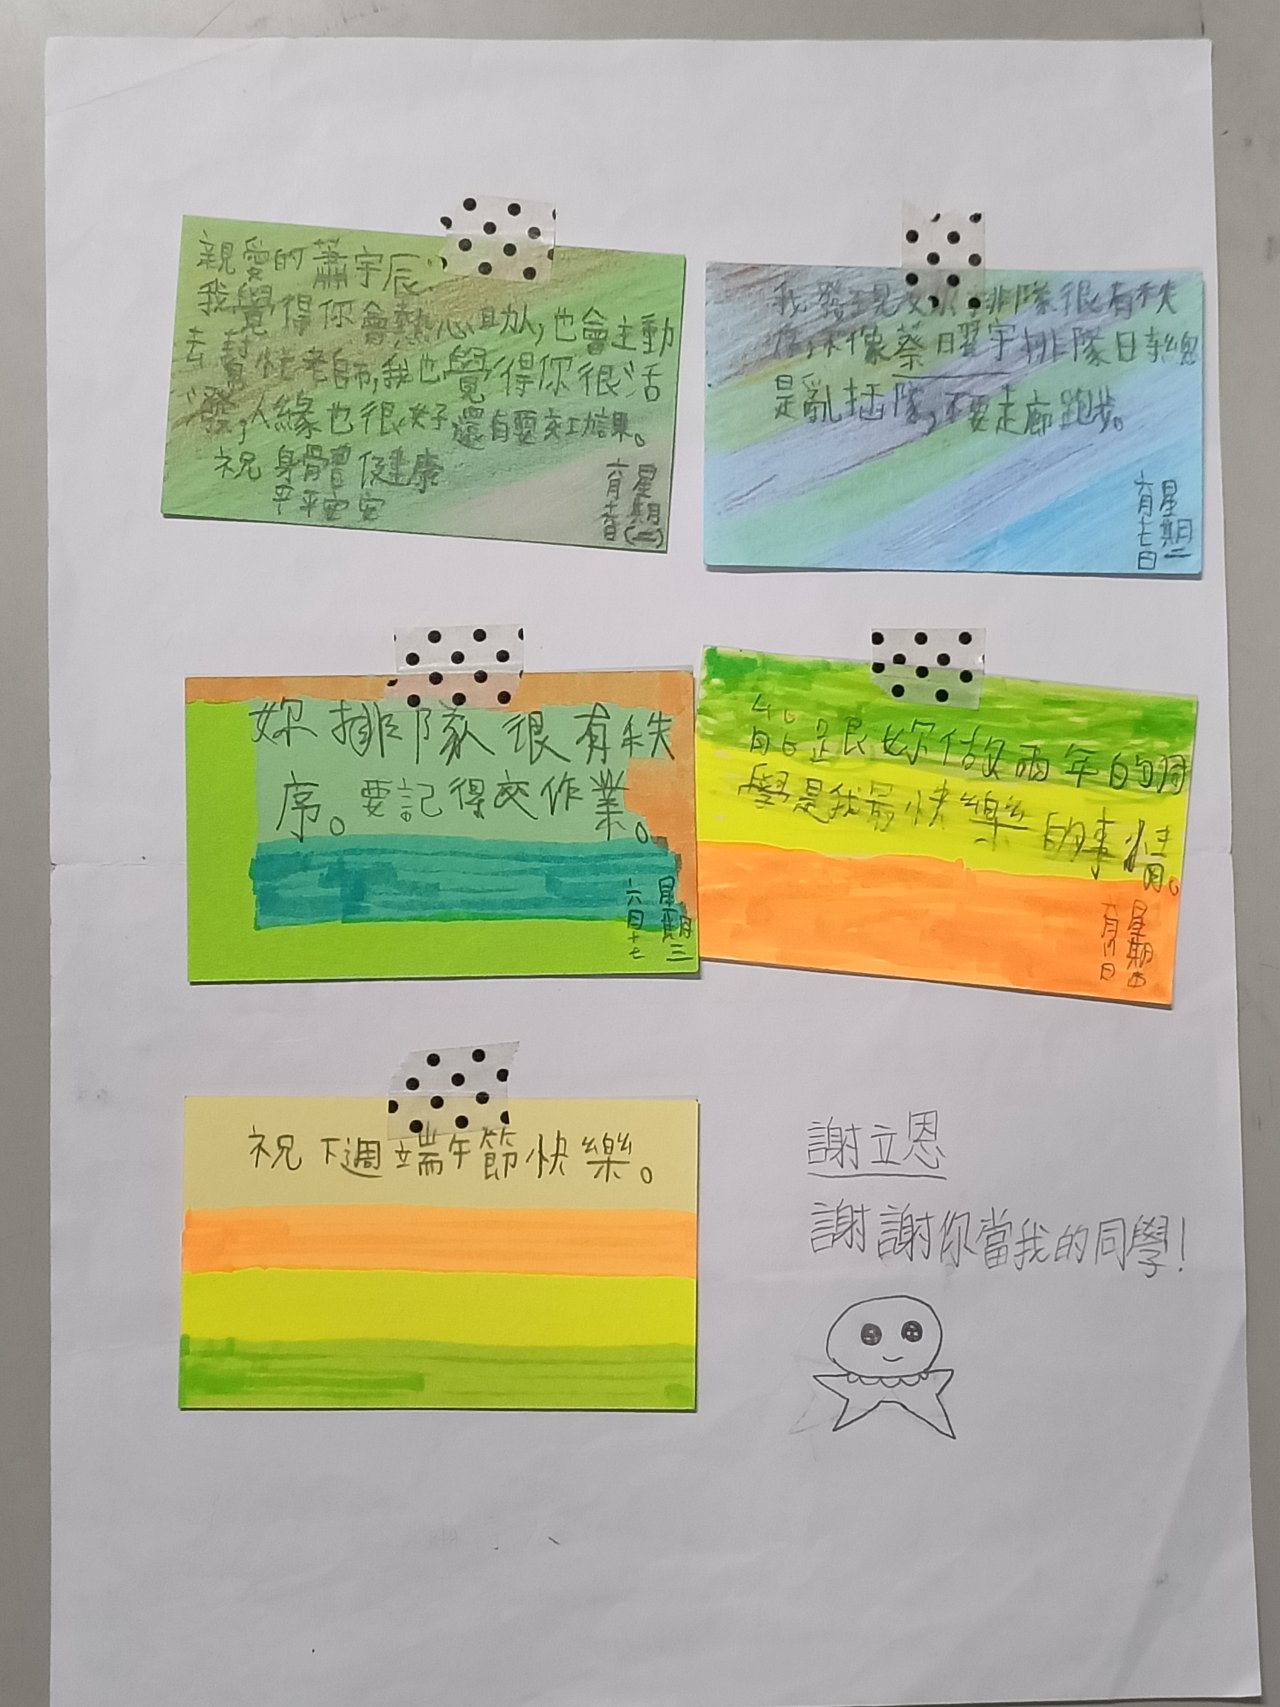 親愛的蕭宇辰:
我覺得你會熱心助人,也會主動
去幫忙老師,我也覺得你很活
潑,人緣也很好還有要交功課。
祝 身體健康
平平安安
星期(二)
六月
我發現妳排隊很有秩
序,不像蔡曜宇排隊時總
是亂插隊,不要走廊跑步。
星期二
六月七日
妳排隊很有秩
序。要記得交作業。
星期三
六月十七
能跟妳做兩年的同
學是我最快樂的事情。
星期四
六月 日
祝下週端午節快樂。
謝立恩
謝謝你當我的同學!